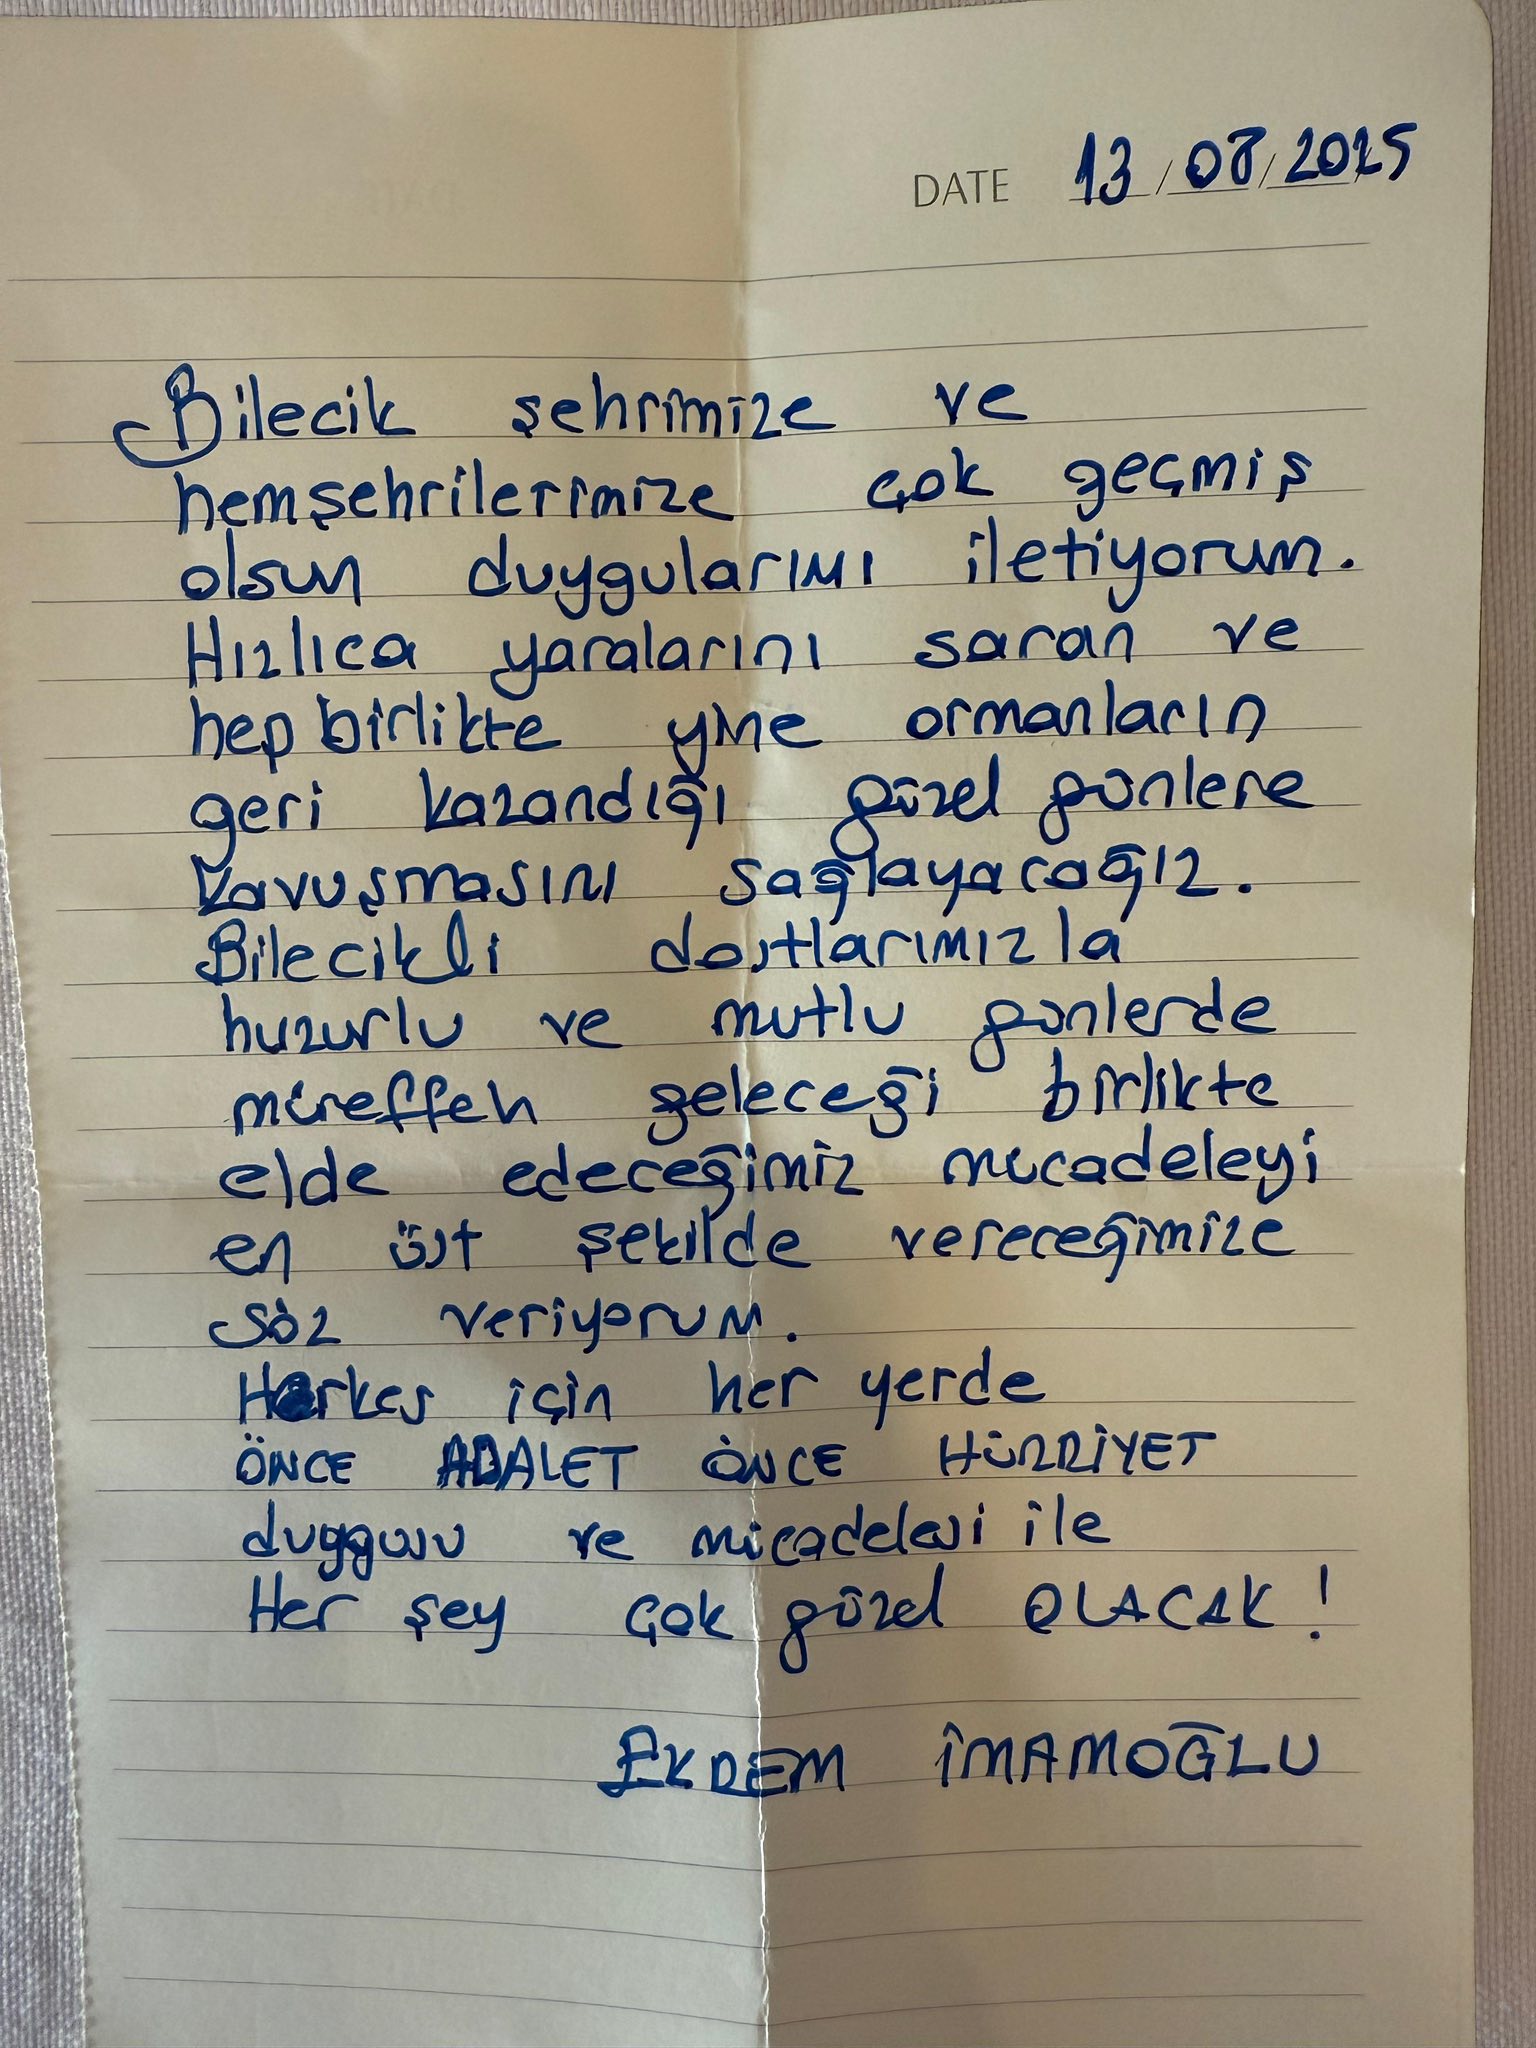 DATE 13/08/2025
Bilecik şehrimize ve
hemşehrilerimize çok geçmiş
olsun duygularımı iletiyorum.
Hızlıca yaralarını saran ve
hep birlikte yine ormanların
geri kazandığı güzel günlere
kavuşmasını sağlayacağız.
Bilecikli dostlarımızla
huzurlu ve mutlu günlerde
müreffeh geleceği birlikte
elde edeceğimiz mücadeleyi
en üst şekilde vereceğimize
söz veriyorum.
Herkes için her yerde
ÖNCE ADALET ÖNCE HÜRRİYET
duygusu ve mücadelesi ile
Her şey çok güzel OLACAK!
EKREM İMAMOĞLU